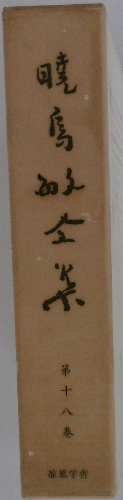 暁烏敏全集
第十八巻
涼風学舎